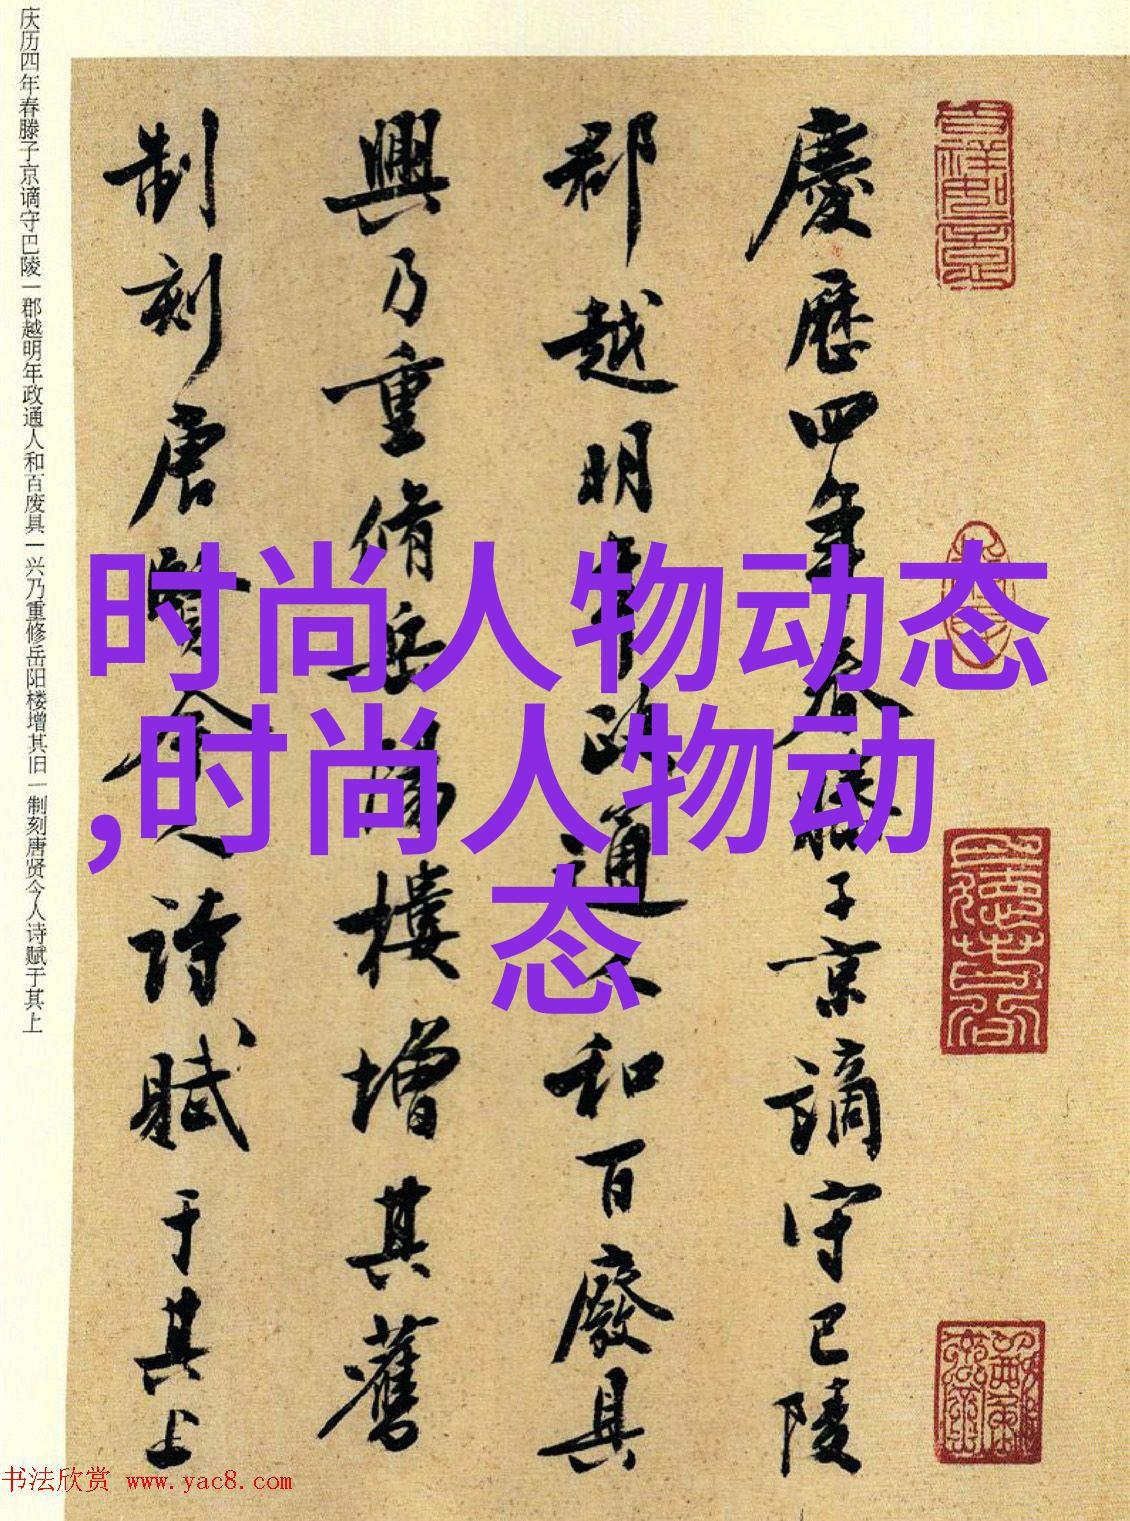 慶歷四年春滕子京谪守巴陵
郡越明年政通人和百廢具
興乃重脩岳陽樓增其舊
制刻唐賢今人诗賦于其上
庆历四年春滕子京谪守巴陵一郡越明年政通人和百废具一兴乃重修岳阳楼增其旧一制刻唐贤今人诗赋于其上
时尚人物动态
,时尚人物动
态
书法欣赏 www.yac8.com